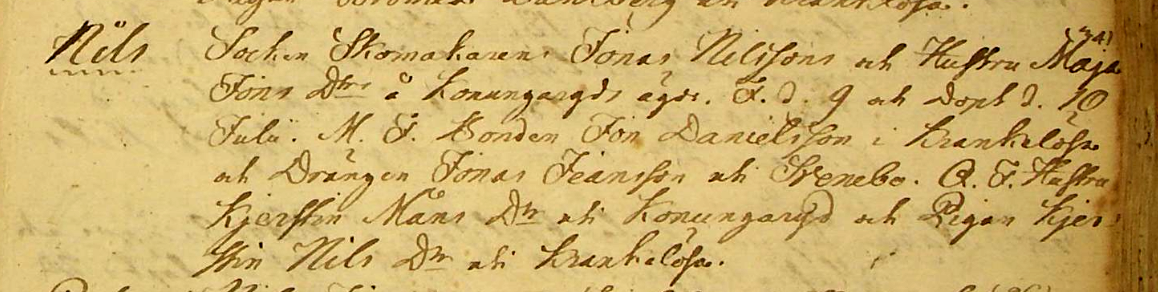 Nils Socken Skomakaren Jonas Nilssons och Hustru Maja
Jöns Dtrs å Konungaryds ägor. F. d. 9 och döpt d. 10
Julii. M. F. Bonden Jon Danielsson i Krankelösa
och Drängen Jonas Jeansson uti Svenebo. Q. F. Hustru
Kjerstin Måns Dtr uti Konungaryd och Pigan Kjer-
stin Nils Dtr uti Krankelösa.